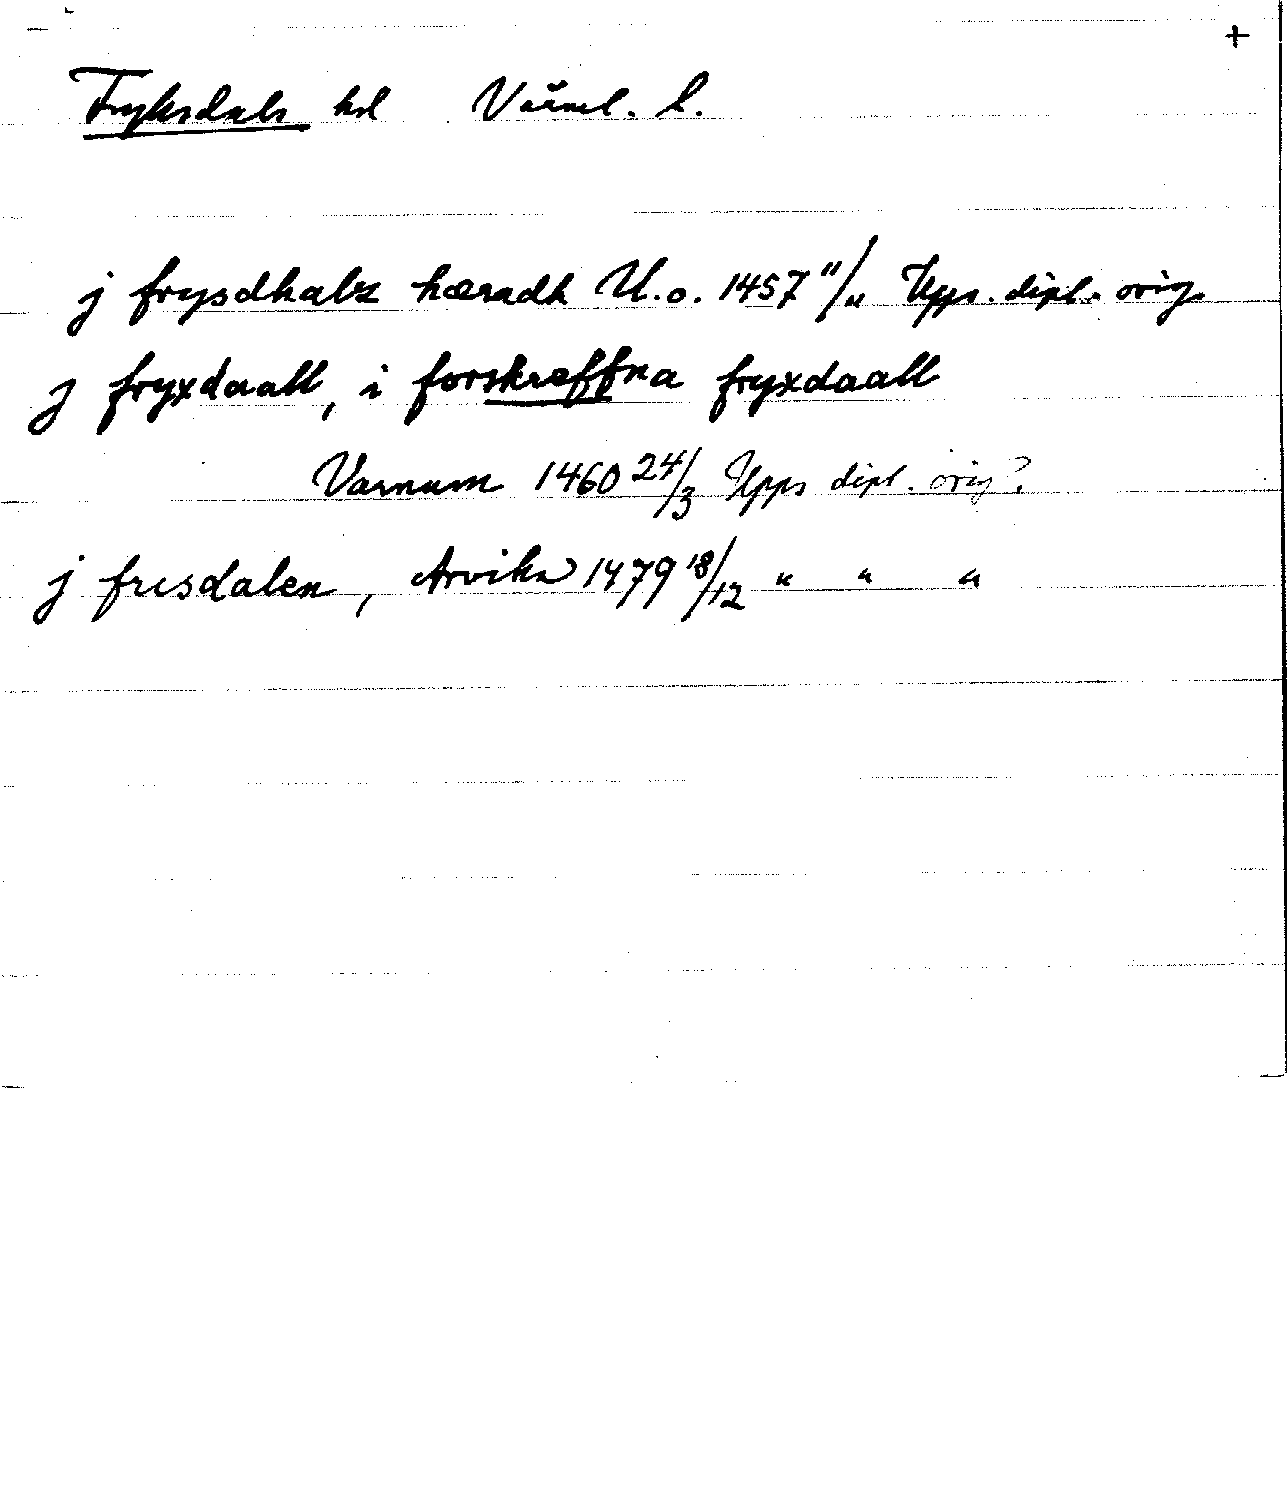 +
Fryksdals hd Värml. l.
j frysdhalz hæradh U.o. 1457 11/11 Upps. dipl. orig.
j fryxdaall, i forskreffna fryxdaall
Varnum 1460 24/3 Upps dipl. orig?
j frisdalen, Arvika 1479 18/12 " " "